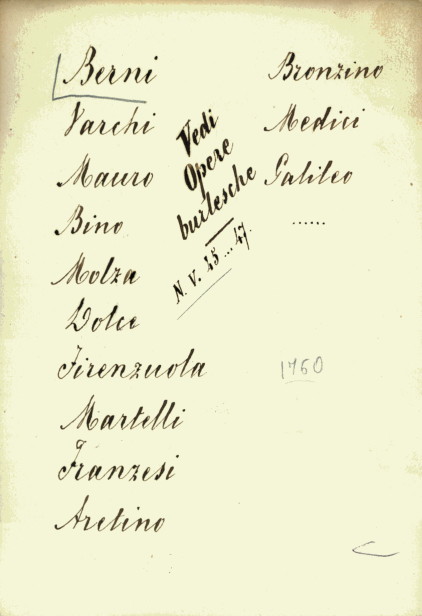 Berni
Varchi
Mauro
Bino
Molza
Dolce
Firenzuola
Martelli
Franzesi
Aretino
Vedi
Opere
burlesche
N. V. 45...47.
Bronzino
Medici
Galileo
......
1760